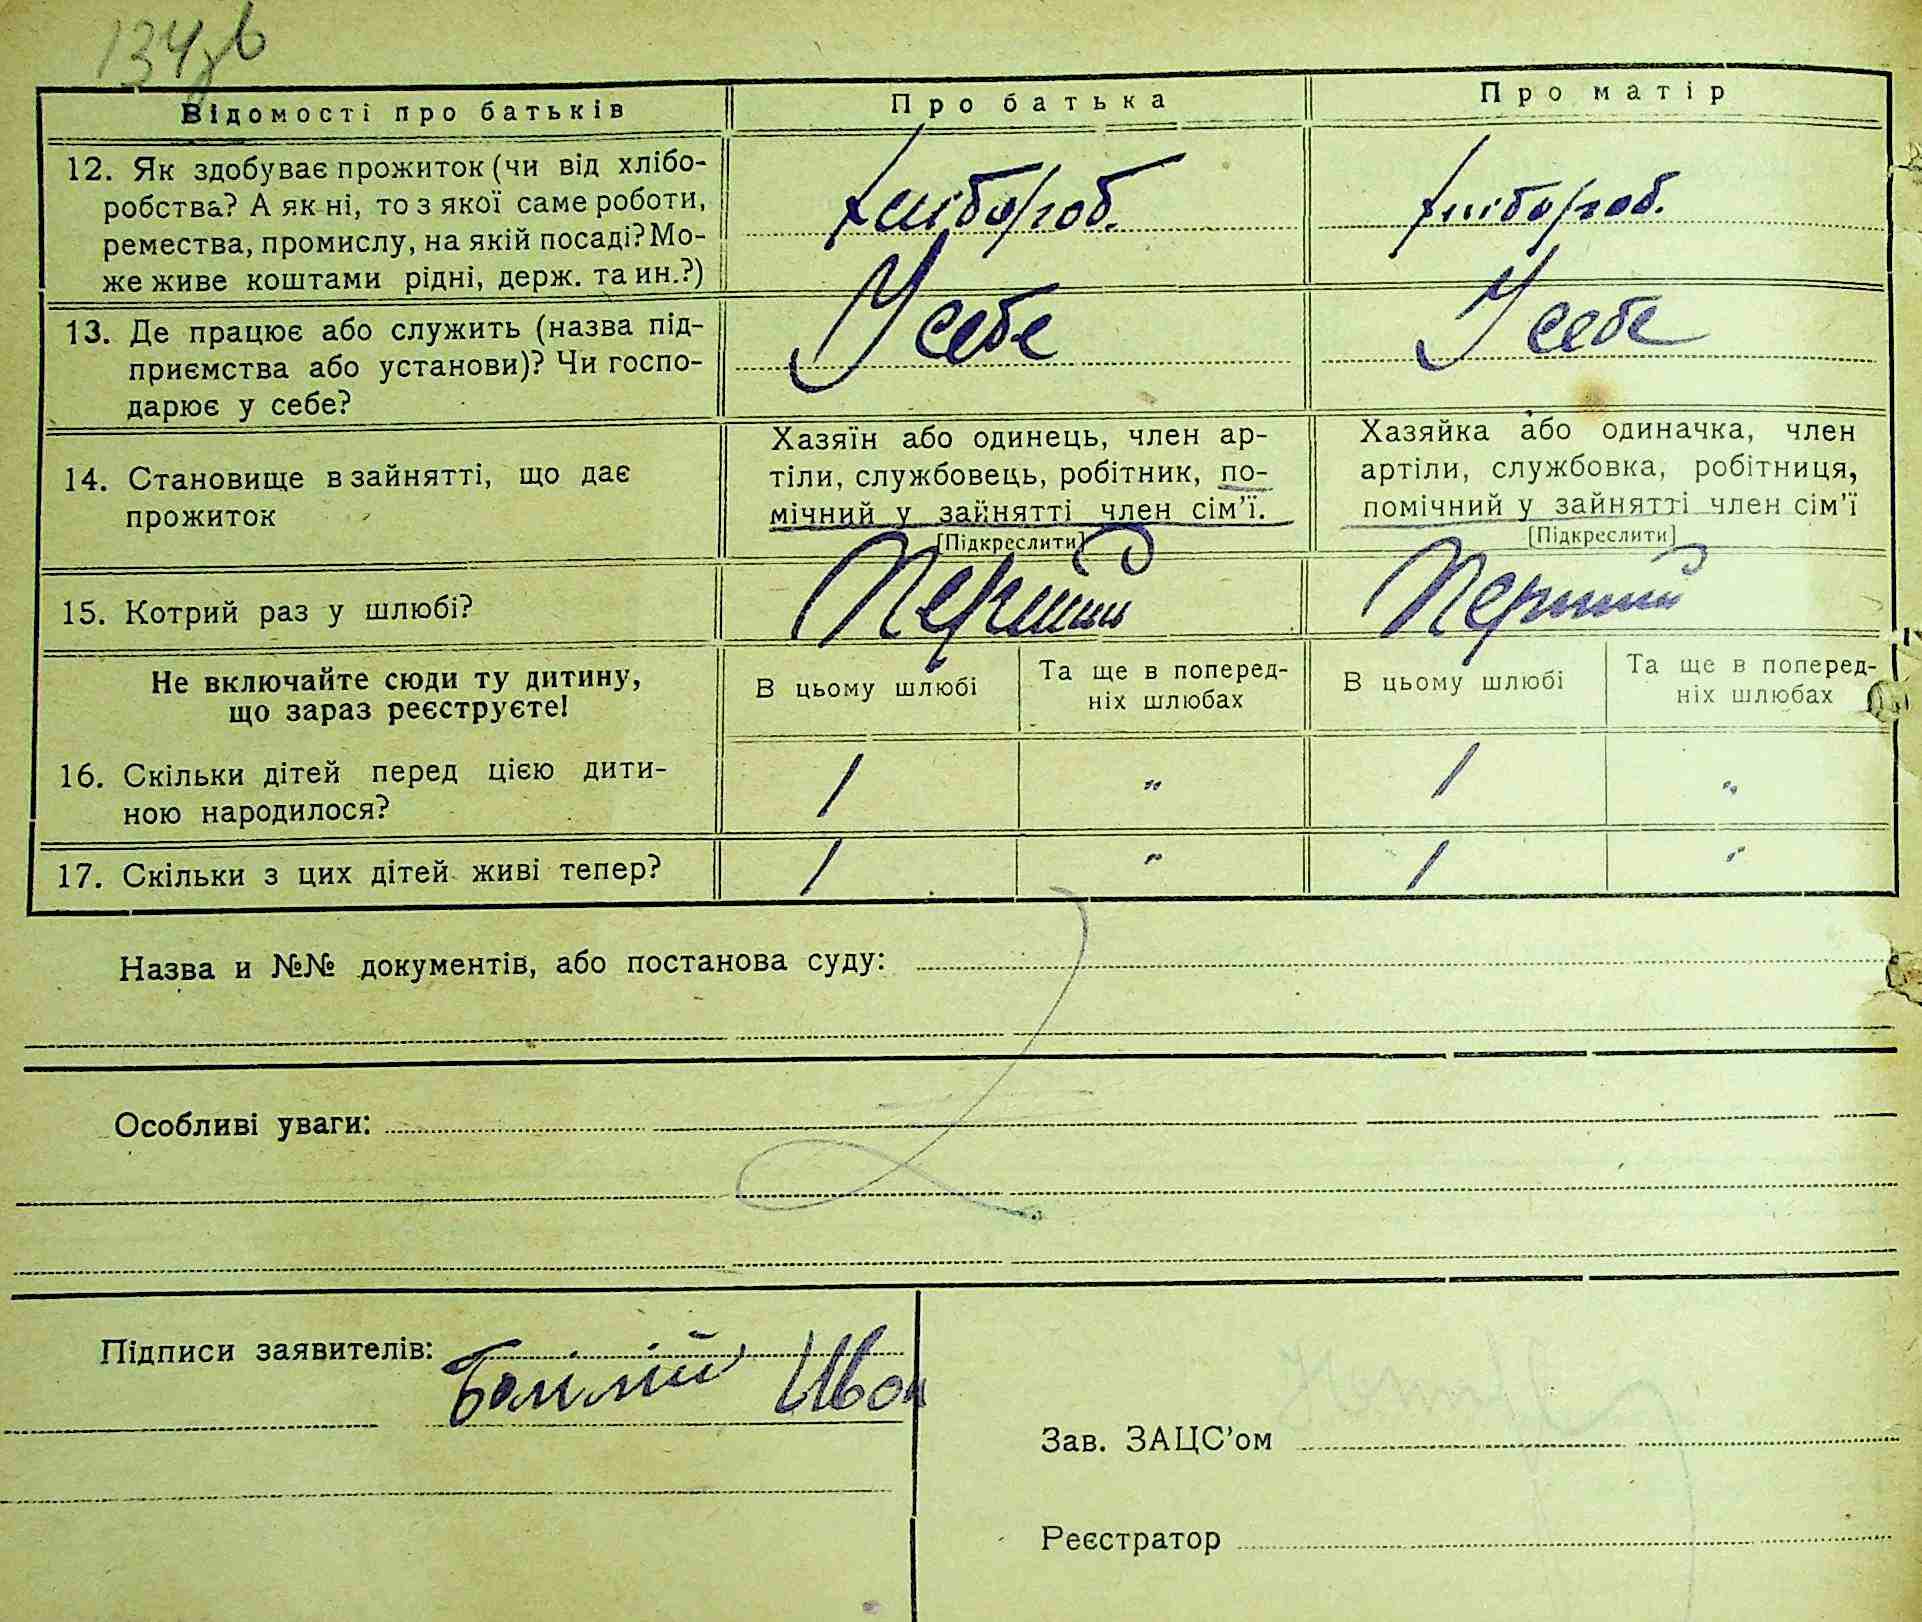 134зв
Відомості про батьків
Про батька
Про матір
12. Як здобуває прожиток (чи від хлібо-
робства? А як ні, то з якої саме роботи,
ремества, промислу, на якій посаді? Мо-
же живе коштами рідні, держ. та ин.?)
Хлібороб.
Хлібороб.
13. Де працює або служить (назва під-
приємства або установи)? Чи госпо-
дарює у себе?
У себе
У себе
14. Становище в зайнятті, що дає
прожиток
Хазяїн або одинець, член ар-
тіли, службовець, робітник, по-
мічний у зайнятті член сім'ї.
[Підкреслити]
Хазяйка або одиначка, член
артіли, службовка, робітниця,
помічний у зайнятті член сім'ї
[Підкреслити]
15. Котрий раз у шлюбі?
Перший
Перший
Не включайте сюди ту дитину,
що зараз реєструєте!
В цьому шлюбі
Та ще в поперед-
ніх шлюбах
В цьому шлюбі
Та ще в поперед-
ніх шлюбах
16. Скільки дітей перед цією дити-
ною народилося?
1 " 1 "
17. Скільки з цих дітей живі тепер?
1 " 1 "
Назва и №№ документів, або постанова суду:
Особливі уваги:
Підписи заявителів:
Иван
Зав. ЗАЦС'ом
Реєстратор